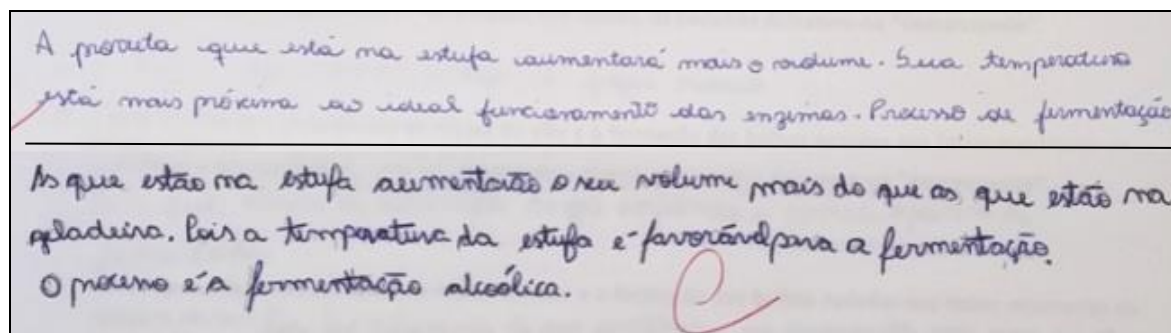 A proveta que está na estufa aumentará mais o volume. Sua temperatura
está mais próxima ao ideal funcionamento das enzimas. Processo de fermentação
As que estão na estufa aumentarão o seu volume mais do que as que estão na
geladeira. Pois a temperatura da estufa é favorável para a fermentação.
O processo é a fermentação alcoólica.